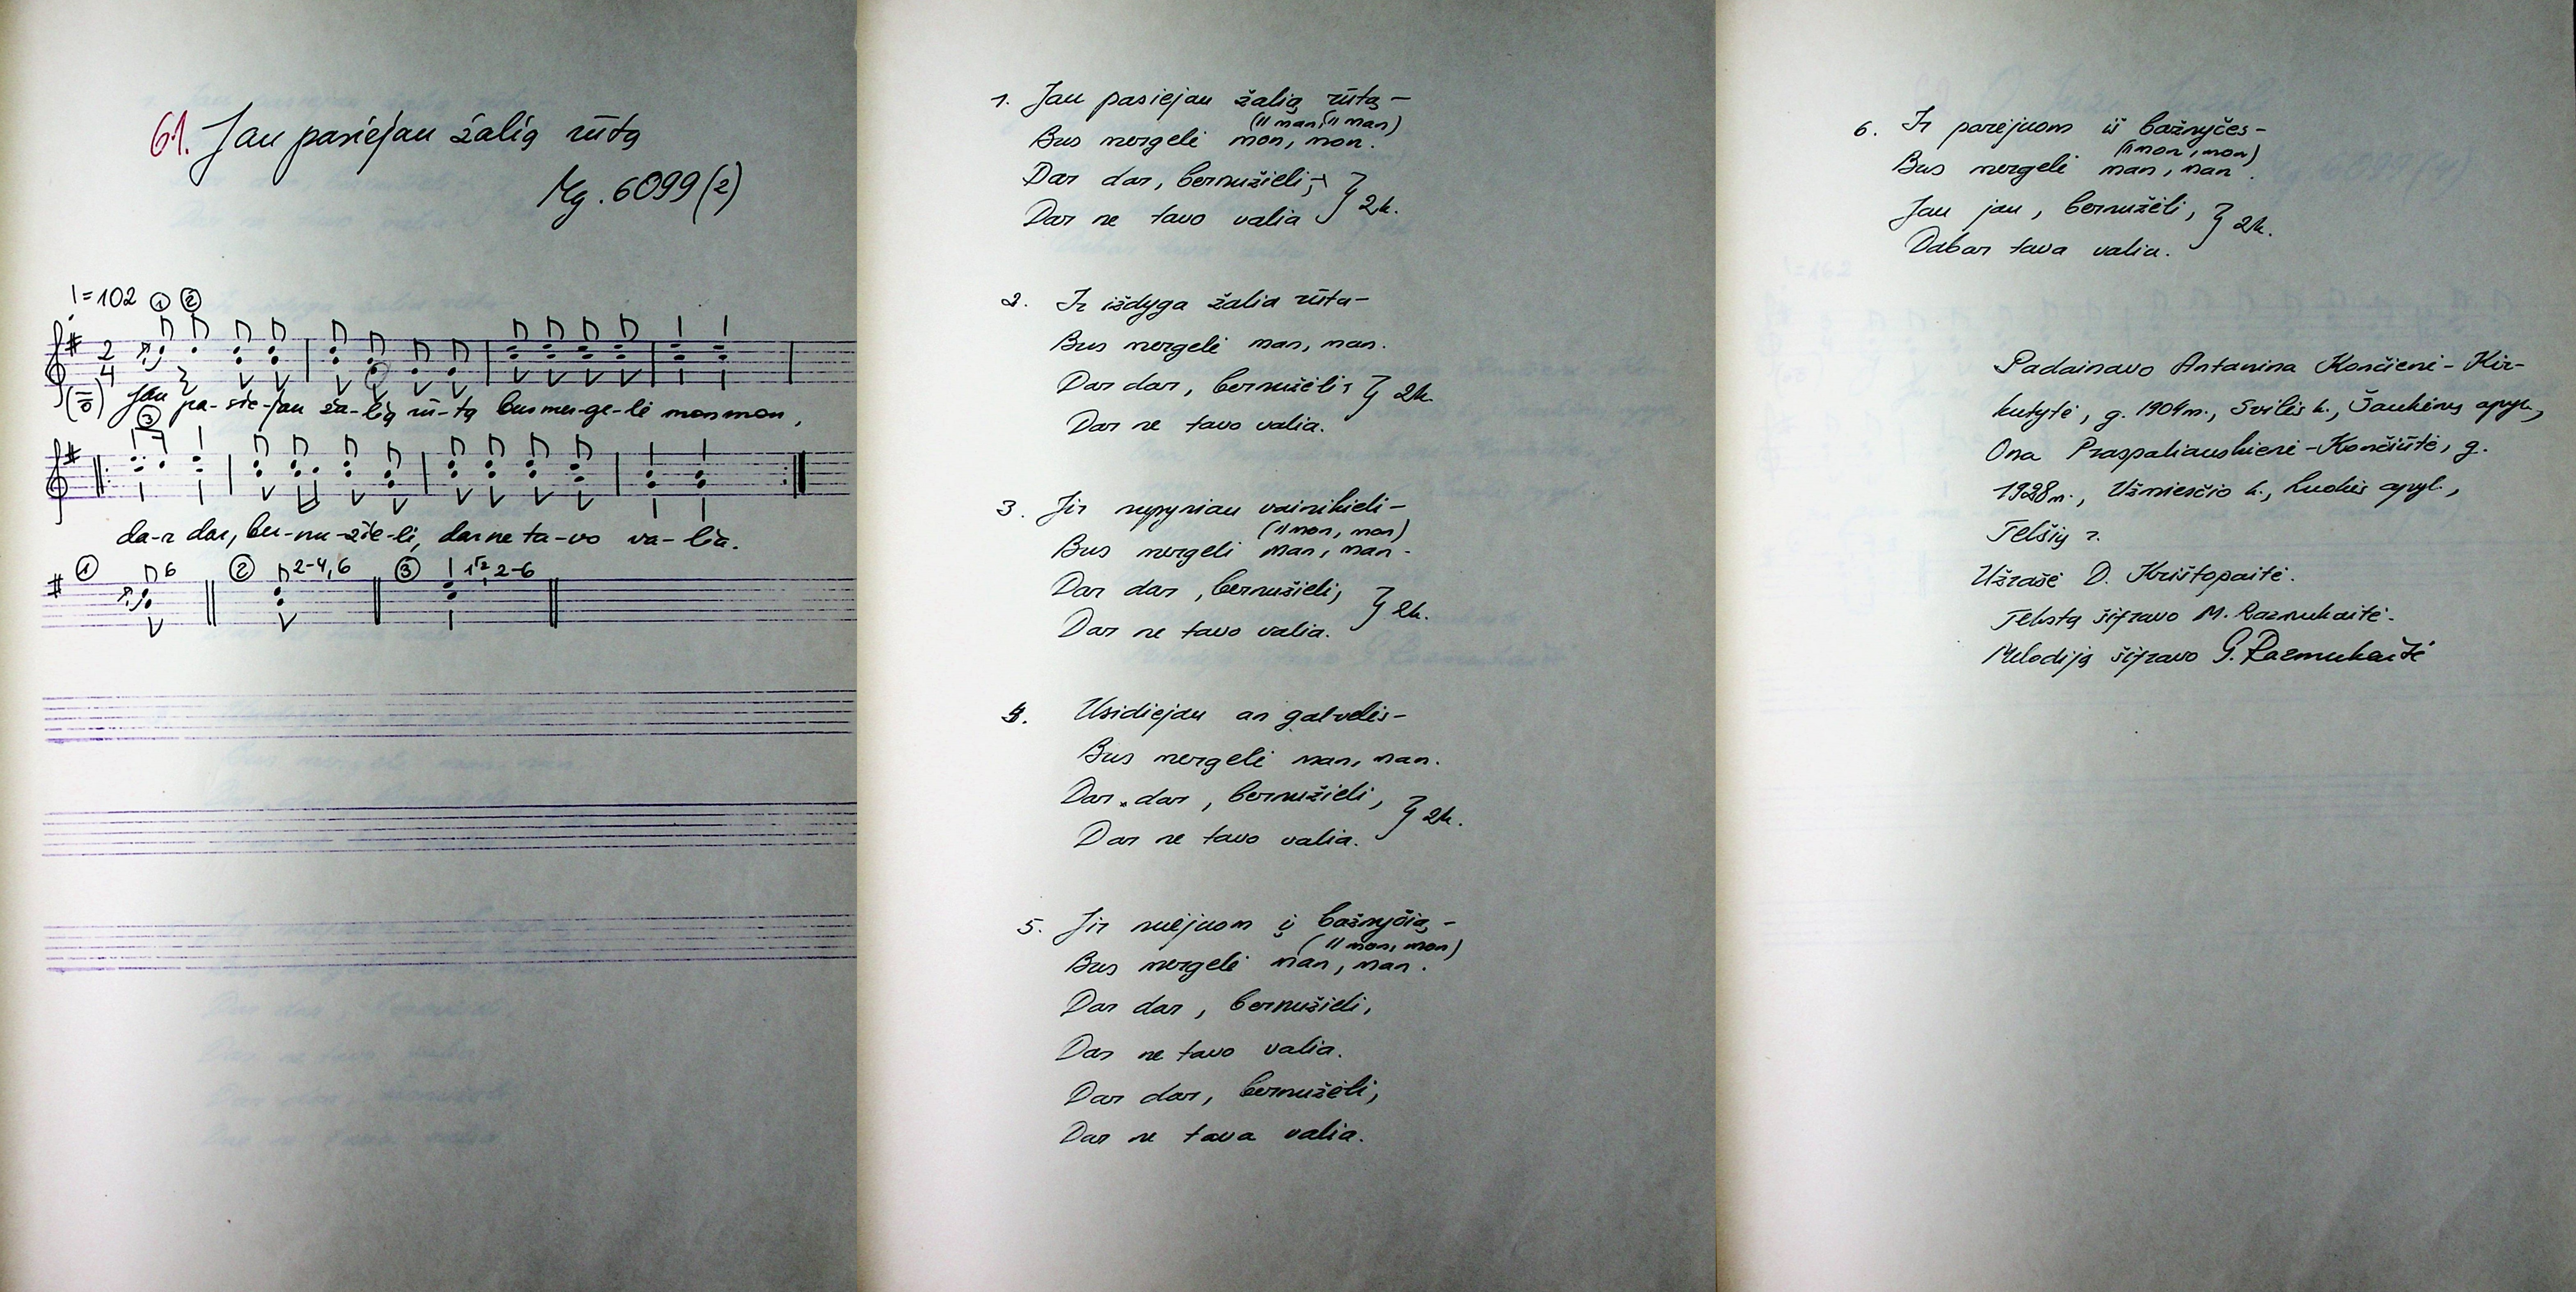 61. Jau pasiejau žalią rūtą
Mg. 6099(2)
=102 1 2
2
4
Jau pa-sie-jau ža-lią rū-tą bus mer-ge-lė mon mon,
3
da-r dar, ber-nu-žie-li, dar ne ta-vo va-lia.
1 6 2 2-4,6 3 2-6
1. Jau pasiejau žalią rūtą –
(II man, II man)
Bus mergelė mon, mon.
Dar dar, bernužieli, } 2k.
Dar ne tavo valia
2. Ir išdyga žalia rūta –
Bus mergelė man, man.
Dar dar, bernužėli, } 2k.
Dar ne tavo valia.
3. Jir nupyniau vainikieli –
(II mon, mon)
Bus mergelė man, man.
Dar dar, bernužieli, } 2k.
Dar ne tavo valia.
4. Usidiejau an galvelės –
Bus mergelė man, man.
Dar dar, bernužieli, } 2k.
Dar ne tavo valia.
5. Jir nuėjuom į bažnyčią –
(II mon, mon)
Bus mergelė man, man.
Dar dar, bernužieli,
Dar ne tavo valia.
Dar dar, bernužėli,
Dar ne tava valia.
6. Ir parėjuom iš bažnyčes –
(II mon, mon)
Bus mergelė man, man.
Jau jau, bernužėli, } 2k.
Dabar tava valia.
Padainavo Antanina Končienė-Kir-
kutytė, g. 1904 m., Svilės k., Šaukėnų apyl.,
Ona Praspaliauskienė-Končiūtė, g.
1928 m., Užmiesčio k., Luokės apyl.,
Telšių r.
Užrašė D. Krištopaitė.
Tekstą šifravo M. Razmukaitė.
Melodiją šifravo G. Razmukaitė